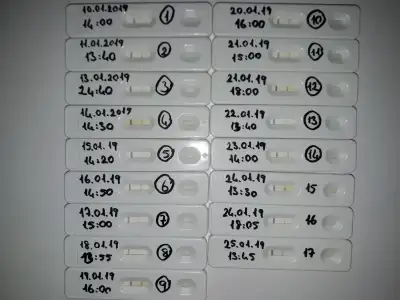 10.01.2019
14:00
1
11.01.2019
13:40
2
13.01.2019
24:40
3
14.01.2019
14:30
4
15.01.19
14:20
5
16.01.19
14:50
6
17.01.19
15:00
7
18.01.19
13:55
8
19.01.19
16:00
9
20.01.19
16:00
10
21.01.19
15:00
11
21.01.19
18:00
12
22.01.19
13:40
13
23.01.19
14:00
14
24.01.19
13:30
15
24.01.19
18:05
16
25.01.19
13:45
17